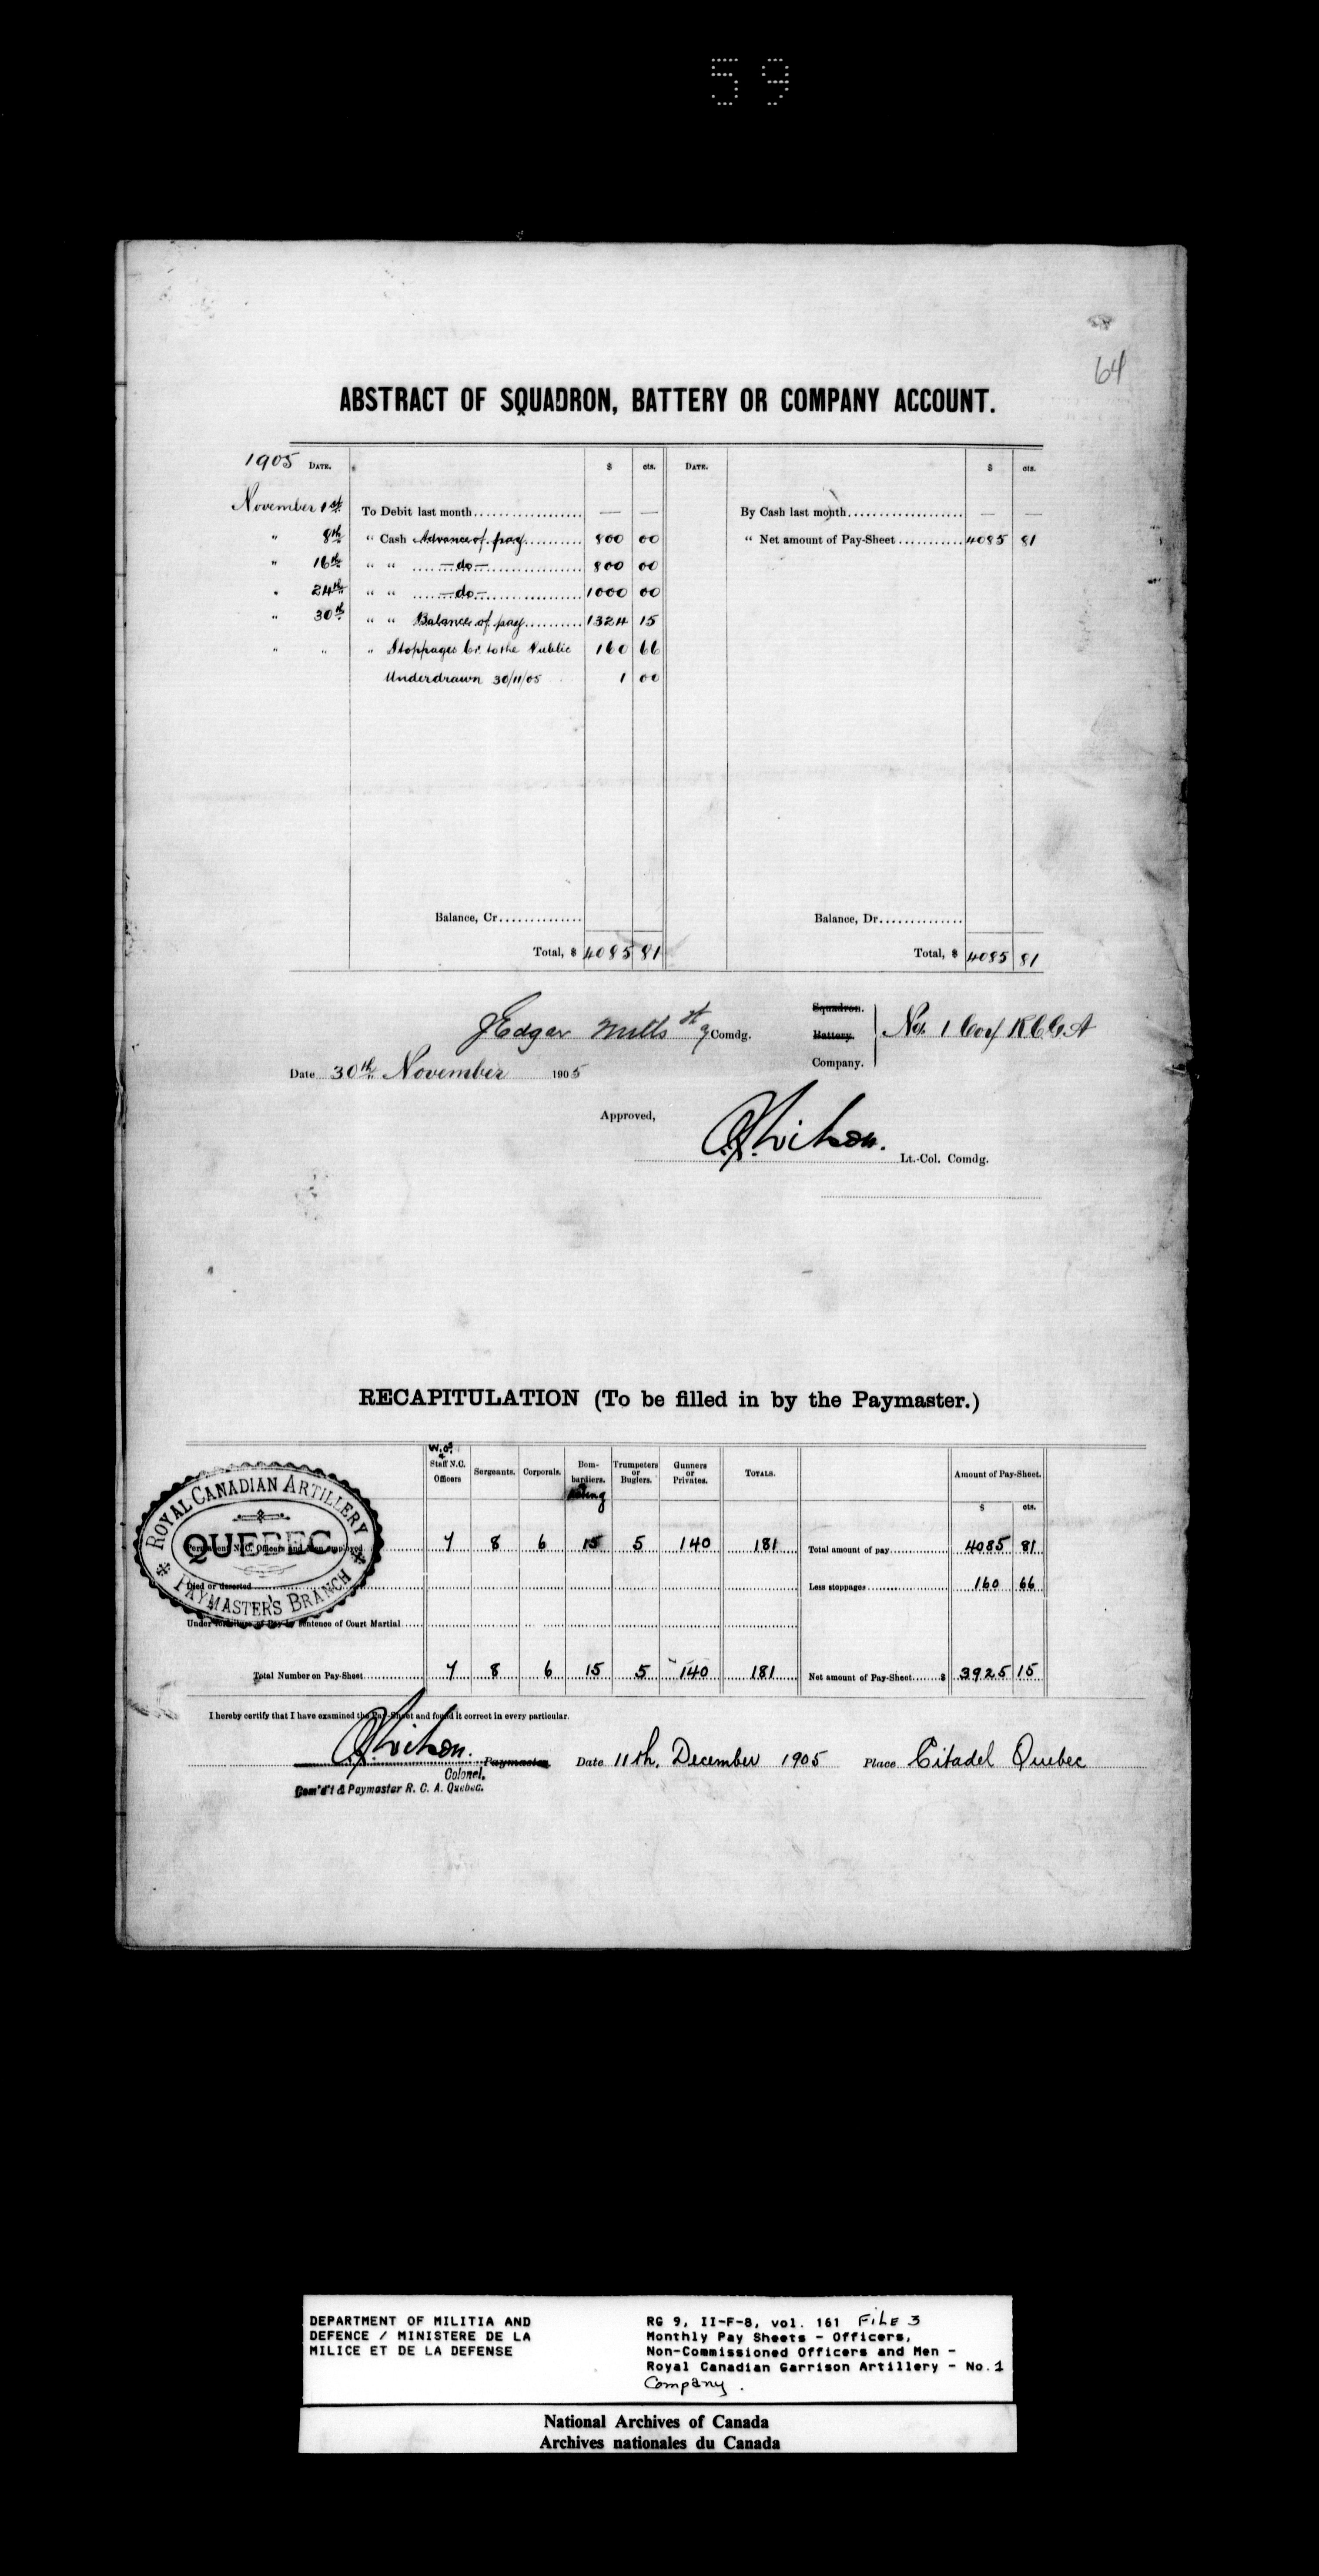 59
64
ABSTRACT OF SQUADRON, BATTERY OR COMPANY ACCOUNT.
1905 DATE. $ cts. DATE. $ cts.
November 1st To Debit last month — — By Cash last month — —
" 8th " Cash Advance of pay 800 00 " Net amount of Pay-Sheet 4085 81
" 16th " " —do— 800 00
" 24th " " —do— 1000 00
" 30th " " Balance of pay 1324 15
" " " Stoppages Cr. to the Public 160 66
Underdrawn 30/11/05 1 00
Balance, Cr. Balance, Dr.
Total, $ 4085 81 Total, $ 4085 81
Squadron.
Edgar Mills Comdg. Battery. No. 1 Coy RCGA
Company.
Date 30th November 1905
Approved,
Wilson. Lt.-Col. Comdg.
RECAPITULATION (To be filled in by the Paymaster.)
W.O.s & Staff N.C. Officers Sergeants. Corporals. Bom-bardiers. Trumpeters or Buglers. Gunners or Privates. TOTALS. Amount of Pay-Sheet.
$ cts.
ROYAL CANADIAN ARTILLERY
QUEBEC
PAYMASTER'S BRANCH
Permanent N.C. Officers and Men employed 7 8 6 15 5 140 181 Total amount of pay 4085 81
Died or deserted Less stoppages 160 66
Under forfeiture of Pay by sentence of Court Martial
Total Number on Pay-Sheet 7 8 6 15 5 140 181 Net amount of Pay-Sheet $ 3925 15
I hereby certify that I have examined the Pay-Sheet and found it correct in every particular.
Wilson. Paymaster, Date 11th, December 1905 Place Citadel Quebec
Colonel,
Com'd't & Paymaster R. C. A. Quebec.
DEPARTMENT OF MILITIA AND
DEFENCE / MINISTERE DE LA
MILICE ET DE LA DEFENSE
RG 9, II-F-8, vol. 161 FILE 3
Monthly Pay Sheets - Officers,
Non-Commissioned Officers and Men -
Royal Canadian Garrison Artillery - No.1
Company.
National Archives of Canada
Archives nationales du Canada